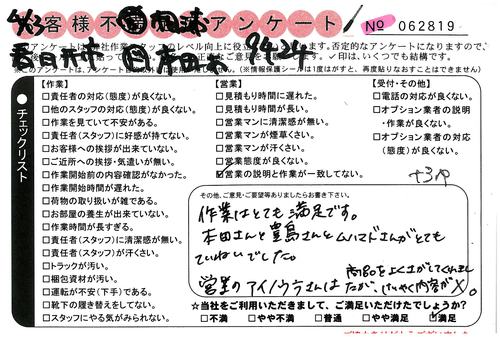 お客様不満アンケート
No 062819
4/13
春日井市
9424
【作業】
□責任者の対応(態度)が良くない。
□他のスタッフの対応(態度)が良くない。
□作業を見ていて不安がある。
□責任者(スタッフ)に好感が持てない。
□お客様への挨拶が出来ていない。
□ご近所への挨拶・気遣いが無い。
□作業開始前の内容確認がなかった。
□作業開始時間が遅れた。
□荷物の取り扱いが雑である。
□お部屋の養生が出来ていない。
□作業時間が長すぎる。
□責任者(スタッフ)に清潔感が無い。
□責任者(スタッフ)が汗くさい。
□トラックが汚い。
□梱包資材が汚い。
□運転が不安(下手)である。
□靴下の履き替えをしてない。
□スタッフにやる気がみられない。
チェックリスト
【営業】
□見積もり時間に遅れた。
□見積もり時間が長い。
□営業マンに清潔感が無い。
□営業マンが煙草くさい。
□営業マンが汗くさい。
□営業態度が良くない。
☑営業の説明と作業が一致してない。
【受付・その他】
□電話の対応が良くない。
□オプション業者の説明
・作業が良くない。
□オプション業者の対応
(態度)が良くない。
その他、ご意見・ご要望等ありましたらお書き下さい。
作業はとても満足です。
本田さんと豊島さんとムハマドさんがとても
ていねいでした。
営業のアイノウラさんは
たが、けいやく内容が×。
☆当社をご利用いただきまして、ご満足いただけたでしょうか?
□不満 □やや不満 □普通 □やや満足 ☑満足